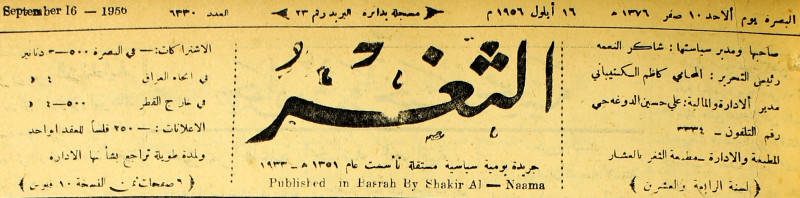 البصرة يوم الاحد ١٠ صفر ١٣٧٦ ه ١٦ أيلول ١٩٥٦ م مسجلة بدائرة البريد رقم ٢٣ العدد ٦٣٣٠ September 16 — 1956
صاحبها ومدير سياستها : شاكر النعمه
رئيس التحرير : المحامي كاظم الكنيباني
مدير الادارة والمالية : علي حسين الدوغه جي
رقم التلفون - ٣٣٣٤
المطبعة والادارة - مطبعة الثغر بالعشار
( لسنة الرابعة والعشرين )
الثغر
جريدة يومية سياسية مستقلة تأسست عام ١٣٥١ ه — ١٩٣٣
Published in Basrah By Shakir Al — Naama
الاشتراكات :— في البصرة ٥٠٠-٣ دنانير
في انحاء العراق ٤ د
في خارج القطر ٥٠٠-٤ د
الاعلانات :— ٢٥٠ فلساً للعقد الواحد
ولمدة طويلة تراجع بشأنها الادارة
( ٦ صفحات ثمن النسخة ١٠ فلوس )